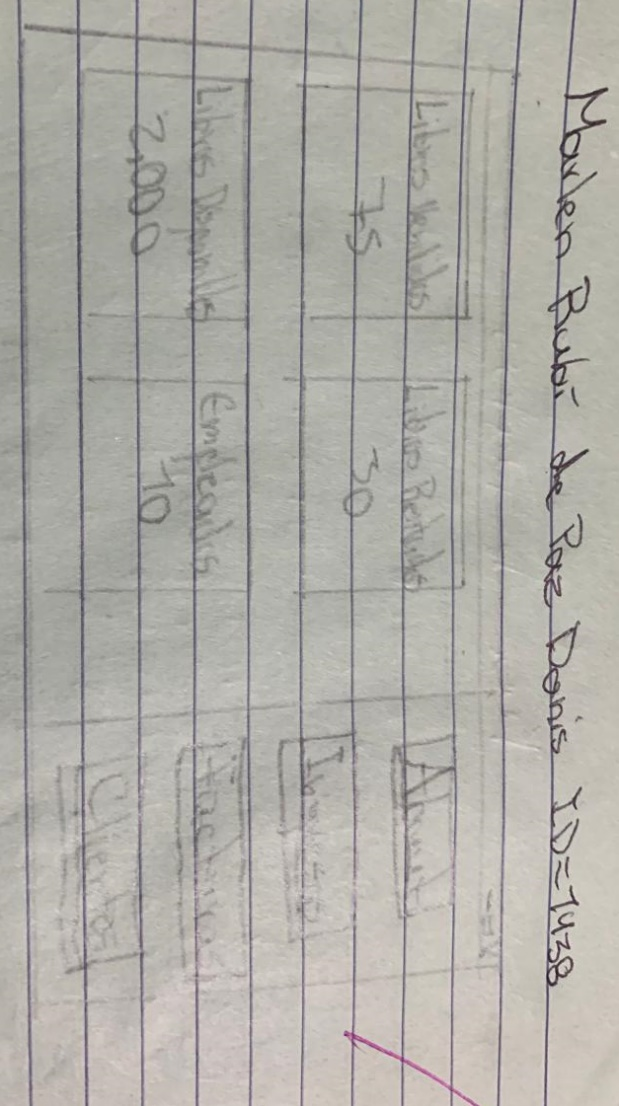 Marlen Rubí de Paz Donis ID=7438
Libros Vendidos
75
Libros Rentados
30
Libros Disponibles
2,000
Empleados
10
Facturas
Clientes